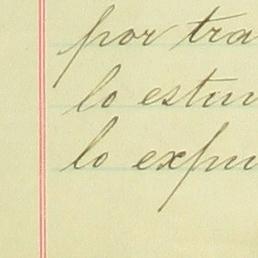 por tra
lo estu
lo expu